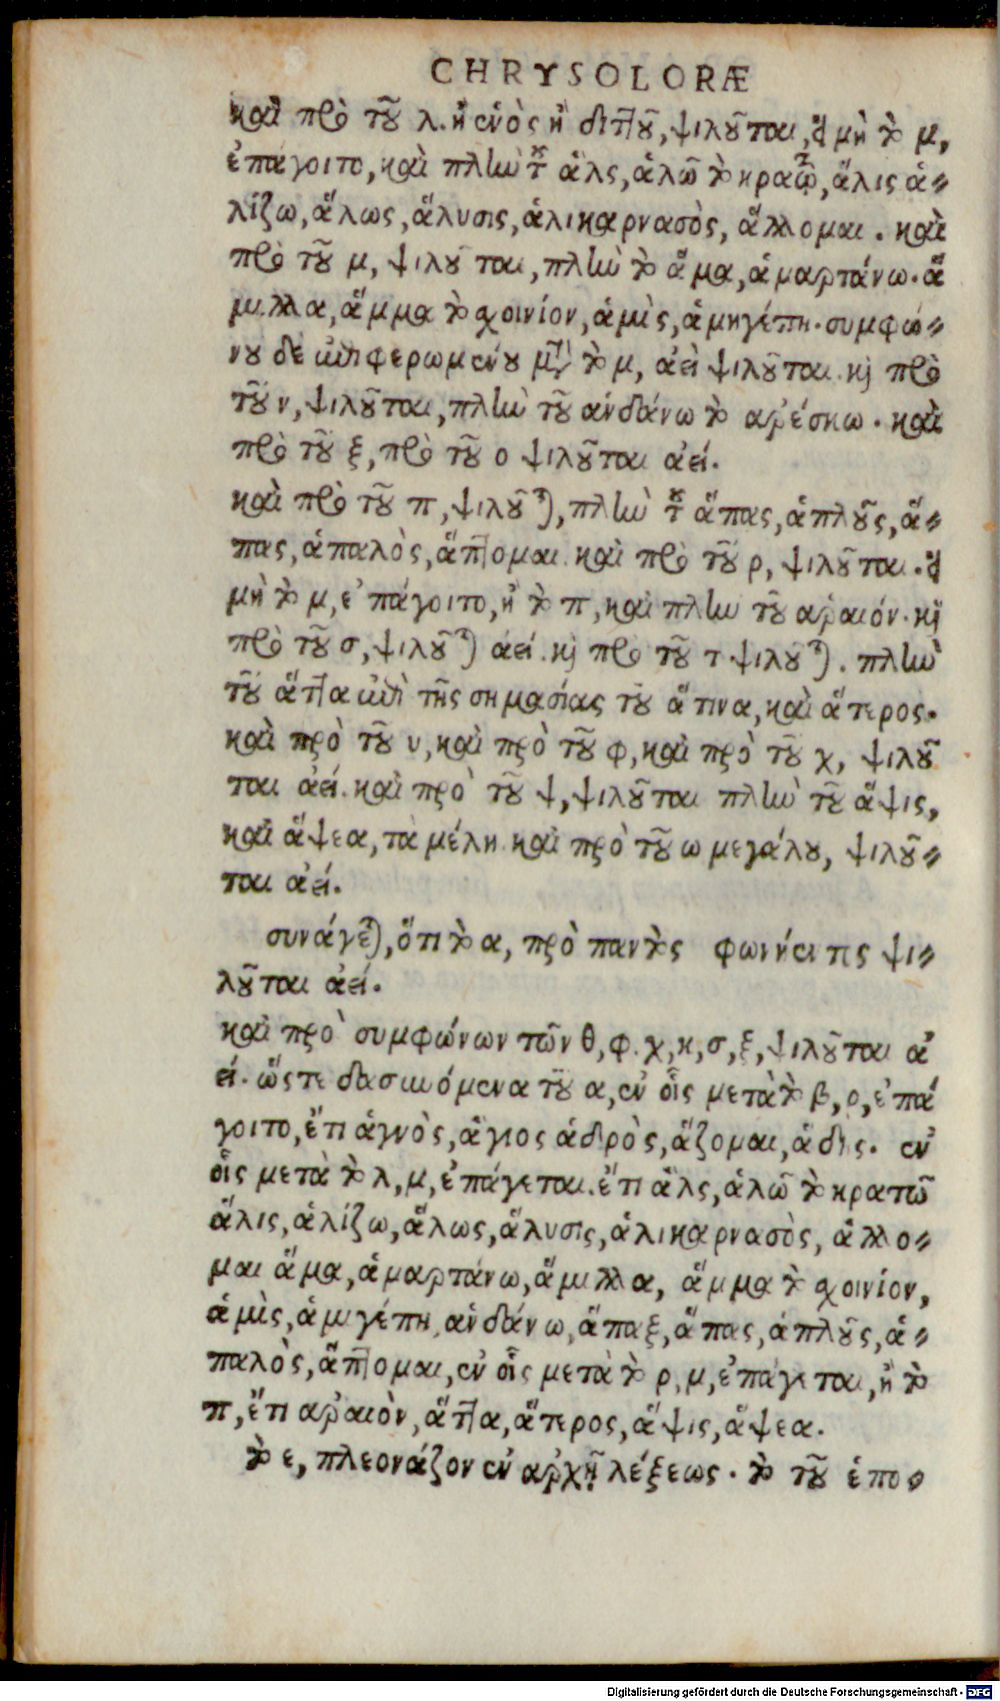 CHRYSOLORÆ
καὶ πρὸ τοῦ λ. ἢ ἑνὸς ἢ διττοῦ, ψιλοῦται, εἰ μὴ τὸ μ,
ἐπάγοιτο, καὶ πλὴν τ͂ ἅλς, ἁλῶ τὸ κρατῶ, ἅλις ἁ-
λίζω, ἅλως, ἅλυσις, ἁλικαρνασὸς, ἅλλομαι. καὶ
πρὸ τοῦ μ, ψιλοῦται, πλὴν τὸ ἅμα, ἁμαρτάνω. ἅ
μιλλα, ἅμμα τὸ χοινίον, ἁμὶς, ἁμηγέπη. συμφώ-
νου δὲ ἐπιφερωμένου μετὰ τὸ μ, ἀεὶ ψιλοῦται. καὶ πρὸ
τοῦ ν, ψιλοῦται, πλὴν τοῦ ἁνδάνω τὸ ἀρέσκω. καὶ
πρὸ τοῦ ξ, πρὸ τοῦ ο ψιλοῦται ἀεί.
καὶ πρὸ τοῦ π, ψιλοῦται, πλὴν τ͂ ἅπας, ἁπλοῦς, ἅ-
πας, ἁπαλὸς, ἅπτομαι. καὶ πρὸ τοῦ ρ, ψιλοῦται. εἰ
μὴ τὸ μ, ἐπάγοιτο, ἢ τὸ π, καὶ πλὴν τοῦ ἁραιόν. καὶ
πρὸ τοῦ σ, ψιλοῦται ἀεί. καὶ πρὸ τοῦ τ. ψιλοῦται. πλὴν
τοῦ ἅττα ἐπὶ τῆς σημασίας τοῦ ἅτινα, καὶ ἅτερος.
καὶ πρὸ τοῦ υ, καὶ πρὸ τοῦ φ, καὶ πρὸ τοῦ χ, ψιλοῦ
ται ἀεί. καὶ πρὸ τοῦ ψ, ψιλοῦται πλὴν τοῦ ἅψις,
καὶ ἅψεα, τὰ μέλη. καὶ πρὸ τοῦ ω μεγάλου, ψιλοῦ-
ται ἀεί.
συνάγεται, ὅτι τὸ α, πρὸ παντὸς φωνήεντος ψι-
λοῦται ἀεί.
καὶ πρὸ συμφώνων τῶν θ, φ. χ, κ, σ, ξ, ψιλοῦται ἀ
εί. ὥςτε δασυνόμενα τοῦ α, ἐν οἷς μετὰ τὸ β, ρ, ἐπά
γοιτο, ἔτι ἁγνὸς, ἅγιος ἁδρὸς, ἅζομαι, ἅδης. ἐν
οἷς μετὰ τὸ λ, μ, ἐπάγεται. ἔτι ἅλς, ἁλῶ τὸ κρατῶ
ἅλις, ἁλίζω, ἅλως, ἅλυσις, ἁλικαρνασὸς, ἅλλο-
μαι ἅμα, ἁμαρτάνω, ἅμιλλα, ἅμμα τὸ χοινίον,
ἁμὶς, ἁμιγέπη, ἁνδάνω, ἅπαξ, ἅπας, ἁπλοῦς, ἁ-
παλὸς, ἅπτομαι, ἐν οἷς μετὰ τὸ ρ, μ, ἐπάγεται, ἢ τὸ
π, ἔτι ἁραιὸν, ἅττα, ἅτερος, ἅψις, ἅψεα.
τὸ ε, πλεονάζον ἐν ἀρχῇ λέξεως. τὸ τοῦ ἑπο-
Digitalisierung gefördert durch die Deutsche Forschungsgemeinschaft - DFG